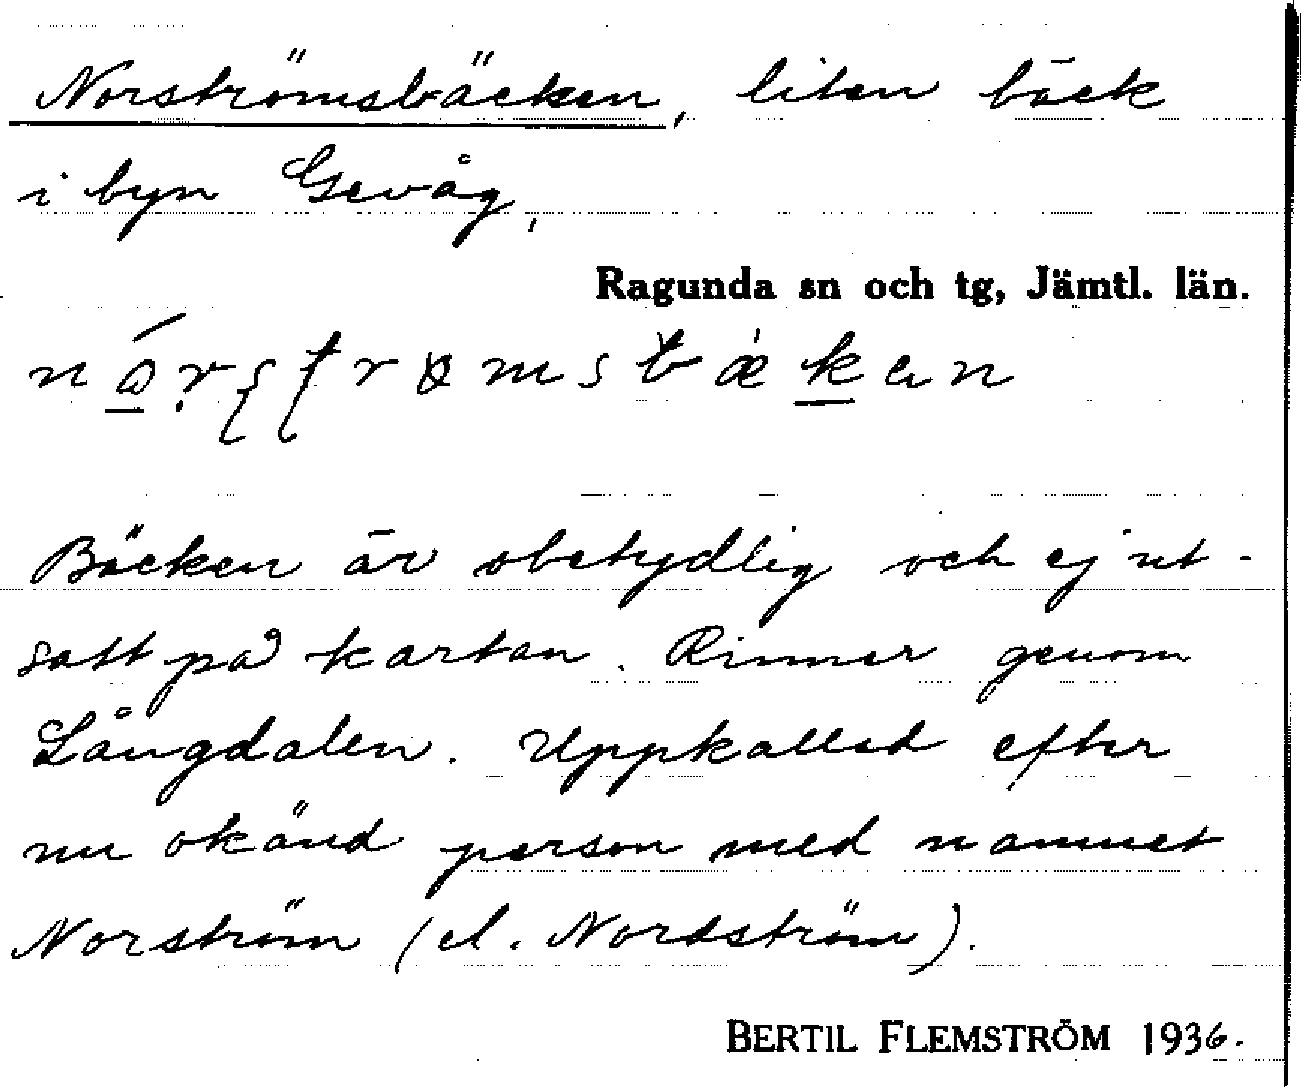 Norströmsbäcken, liten bäck
i byn Gevåg,
Ragunda sn och tg, Jämtl. län.
Bäcken är obetydlig och ej ut-
satt på kartan. Rinner genom
Långdalen. Uppkallad efter
nu okänd person med namnet
Norström (el. Nordström).
BERTIL FLEMSTRÖM 1936.